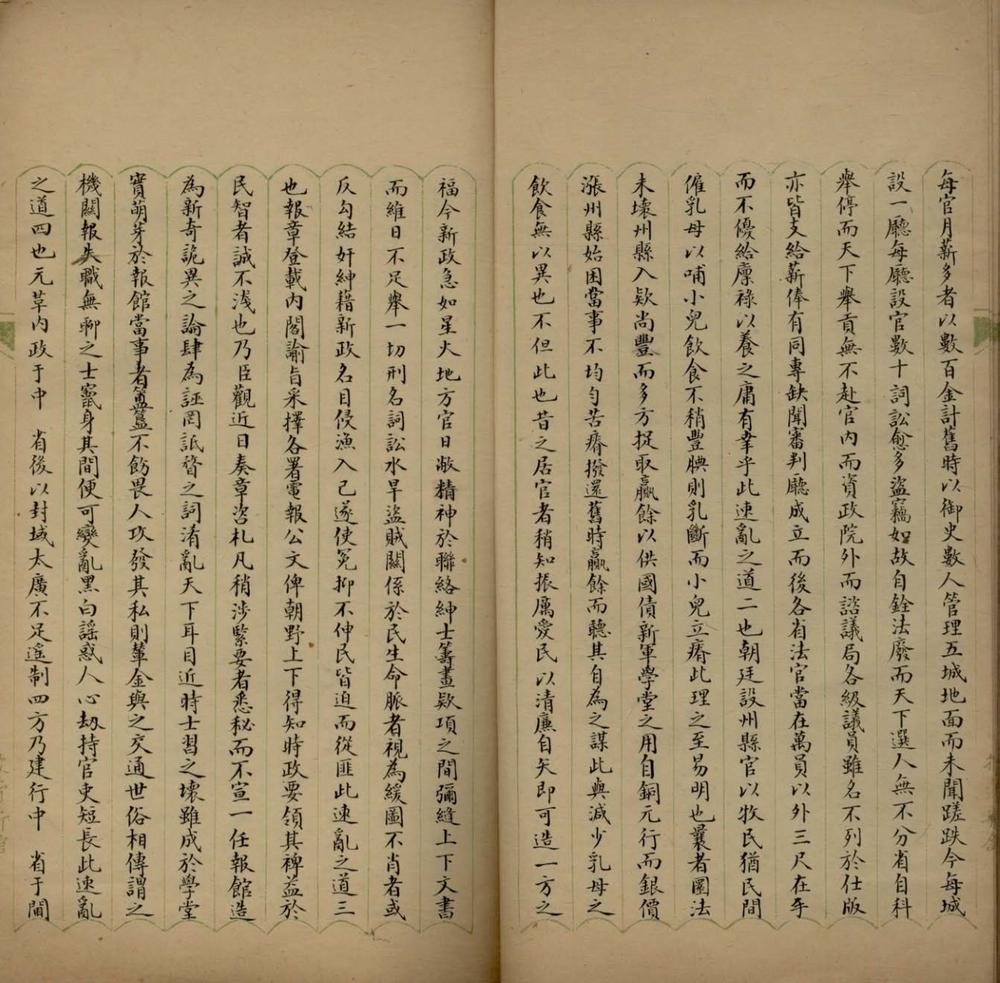 每官月薪多者以數百金計舊時以御史數人管理五城地面而未聞蹉跌今每城
設一廳每廳設官數十詞訟愈多盜竊如故自銓法廢而天下選人無不分省自科
舉停而天下舉貢無不赴官內而資政院外而諮議局各級議員雖名不列於仕版
亦皆支給薪俸有同專缺聞審判廳成立而後各省法官當在萬員以外三尺在手
而不優給廩祿以養之庸有幸乎此速亂之道二也朝廷設州縣官以牧民猶民間
僱乳母以哺小兒飲食不稍豐腆則乳斷而小兒立瘠此理之至易明也曩者圜法
未壞州縣入欵尚豐而多方捉取贏餘以供國債新軍學堂之用自銅元行而銀價
漲州縣始困當事不均勻苦瘠撥還舊時贏餘而聽其自為之謀此與減少乳母之
飲食無以異也不但此也昔之居官者稍知振厲愛民以清廉自矢即可造一方之
福今新政急如星火地方官日敝精神於聯絡紳士籌畫欵項之間彌縫上下文書
而維日不足舉一切刑名詞訟水旱盜賊關係於民生命脈者視為緩圖不肖者或
反勾結奸紳藉新政名目侵漁入己遂使冤抑不伸民皆迫而從匪此速亂之道三
也報章登載內閣諭旨采擇各署電報公文俾朝野上下得知時政要領其裨益於
民智者誠不淺也乃臣觀近日奏章咨札凡稍涉緊要者悉秘而不宣一任報館造
為新奇詭異之論肆為誣罔詆謷之詞淆亂天下耳目近時士習之壞雖成於學堂
實萌芽於報館當事者簠簋不飭畏人攻發其私則輦金與之交通世俗相傳謂之
機關報失職無聊之士竄身其間便可變亂黑白謠惑人心劫持官吏短長此速亂
之道四也元草內政于中　省後以封域太廣不足遙制四方乃建行中　省于閫